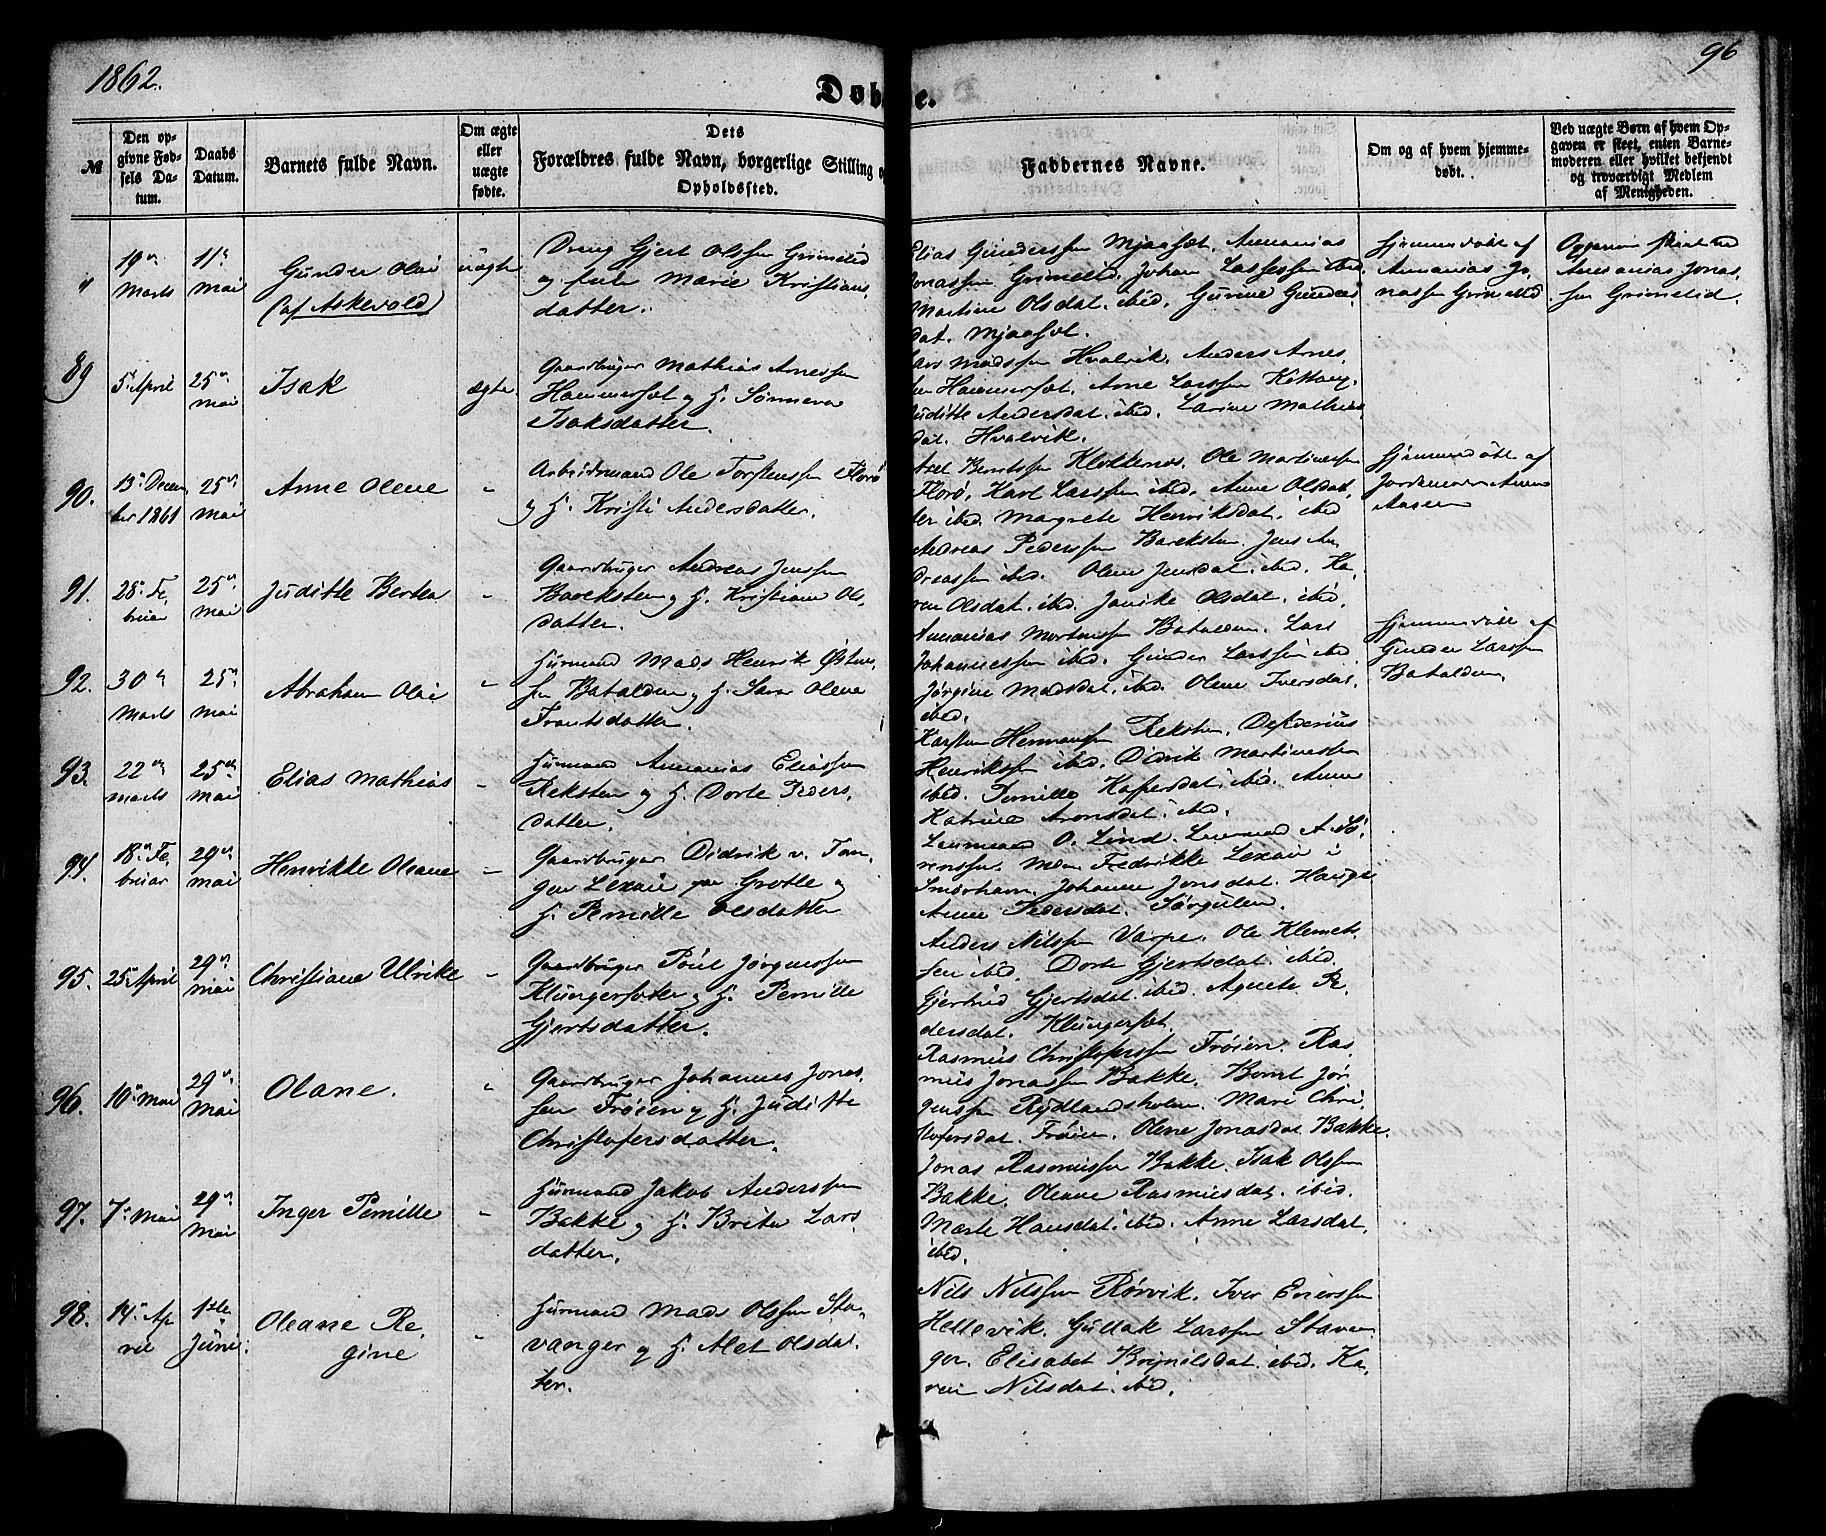 1862.
96
Døbte.
№
Den op-
givne Fød-
sels Da-
tum.
Daabs
Datum.
Barnets fulde Navn.
Om ægte
eller
uægte
fødte.
Dets
Forældres fulde Navn, borgerlige Stilling o
Opholdssted.
Faddernes Navne.
Om og af hvem hjemme-
døbt.
Ved uægte Børn af hvem Op-
gaven er skeet, enten Barne-
moderen eller hvilket bekjendt
og troværdigt Medlem
af Menigheden.
"
19de
Marts
11te
Mai
Gunder Olai
(af Askevold)
uægte
Dreng Gjert Olssen Grimelid
og Marie Kristians,
datter.
Elias Gunderssen Mjaaset. Ananias
Jonassen Grimelid. Johan Lassessen ibid.
Martine Olsdat. ibid. Gurine Gunders
dat. Mjaaset.
Hjemmedøbt af
Ananias Jo,
nassen Grimelid
Opgaven skeet ved
Ananias Jonas,
sen Grimelid.
89
5te April
25de
Mai
Isak
ægte
Gaardbruger Mathias Arnessen
Hammerset og H. Sønneva
Isaksdatter.
Lars Madssen Hvalvik. Anders Arnes,
sen Hammerset. Arne Larssen
Juditte Andersdat. ibid. Larine Mathias
dat. Hvalvik.
90.
13de Decem,
ber 1861
25de
Mai
Anne Olene
"
Arbeidsmand Ole Torstenssen Florø
og H. Kristi Andersdatter.
Axel Berntssen Klokkernes. Ole Martinussen
Florø. Karl Larssen ibid. Anne Olsdat,
ter ibid. Margrete Henriksdat. ibid
Hjemmedøbt af
Jordemoder Anne
Aasen
91.
28de Fe
bruar
25de
Mai
Juditte Berthea
"
Gaardbruger Andreas Jenssen
Bareksten og H. Kristiane Ols,
datter.
Andreas Pederssen Bareksten. Jens An,
dreassen ibid. Olene Jensdat. ibid. Ka,
ren Olsdat. ibid. Janike Olsdat. ibid.
92.
30de
Marts
25de
Mai
Abraham Olai
"
Huusmand Mads Henrik Østens,
sen Batalden og H. Sara Olene
Frantsdatter.
Ananias Mortenssen Batalden. Lars
Johannessen ibid. Gunder Larssen ibid
Jørgine Madsdat. ibid. Olene Iversdat.
ibid.
Hjemmedøbt af
Gunder Larssen
Batalden.
93.
22de
Marts
25de
Mai
Elias Mathias
"
Huusmand Ananias Eliassen
Reksten og H. Dorte Peders,
datter.
Karsten Hermanssen Reksten. Desiderius
Henrikssen ibid. Didrik Martinessen
ibid. Pernille Kaspersdat. ibid. Anne
Katrine Aronsdat. ibid.
94.
18de Fe,
bruar
29de
Mai
Henrikke Oleane
"
Gaardbruger Didrik v. Tan,
gen Lexau paa Grotle og
H. Pernille Olsdatter
O. Lind. A. Sø,
renssen. Fredrikke Lexau i
Smørhavn. Johanne Jonsdat. Hauge
Anne Pedersdat. Sørgulen.
95.
25de April
29de
Mai
Christiane Ulrike
"
Gaardbruger Poul Jørgenssen
og H. Pernille
Gjertsdatter.
Anders Nilssen Varpe. Ole Klemet,
sen ibid. Dorte Gjertsdat. ibid.
Gjertrud Gjertsdat. ibid. Agnete Pe,
dersdat. Klungerset.
96.
10de Mai
29de
Mai
Olane.
"
Gaardbruger Johannes Jonas,
sen Frøien og H. Juditte
Christofersdatter.
Rasmus Christoferssen Frøien. Ras,
mus Jonassen Bakke. Bernt Jør,
genssen Rydlandsholm. Mari Chri,
stofersdat. Frøien. Olene Jonasdat. Bakke.
97.
7de Mai
29de
Mai
Inger Pernille
"
Huusmand Jakob Anderssen
Bakke og H. Brita Lars
datter.
Jonas Rasmussen Bakke. Isak Olssen
Bakke. Oleane Rasmusdat. ibid.
Marte Hansdat. ibid. Anne Larsdat.
ibid.
98.
14de Ap
ril
1ste
Juni.
Oleane Re,
gine
"
Huusmand Mads Olssen Sta,
vanger og H. Alet Olsdat,
ter.
Nils Nilssen Rørvik. Iver Enerssen
Hellevik. Gullak Larssen Stavan
ger. Elisabet Brynilsdat. ibid. Ka,
ren Nilsdat. ibid.